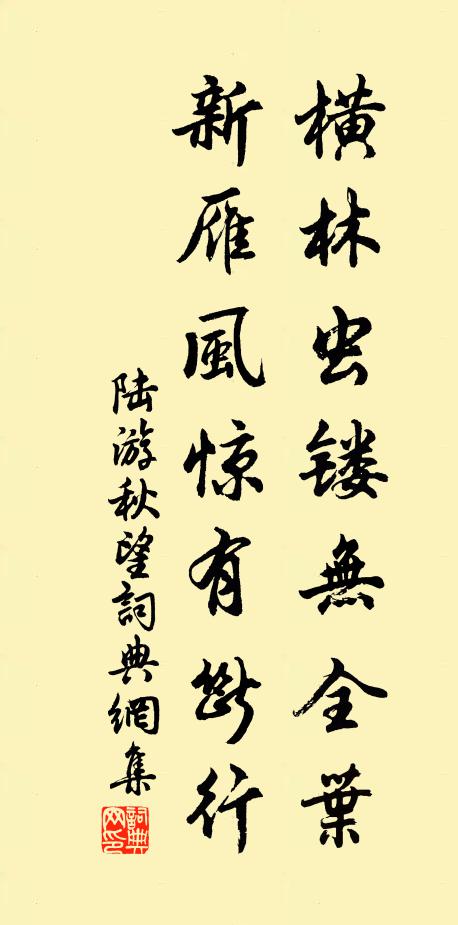 橫林虫镂無全葉
新雁風惊有斷行
陆游秋望詞典網集
詞典网印